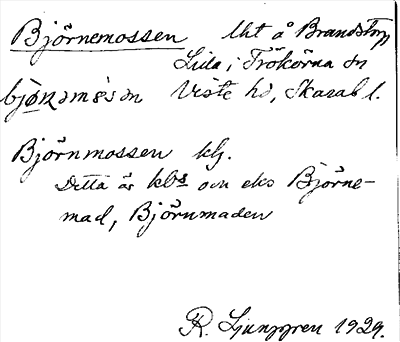 Björnemossen Unt å Brandstorp
Lilla, i Trökörna sn
bjö̱ɴəmɛ̀sən Viste hd, Skarab l.
Björnmossen klg.
Detta är kbs och eks Björne-
mad, Björnmaden
R. Ljunggren 1929.